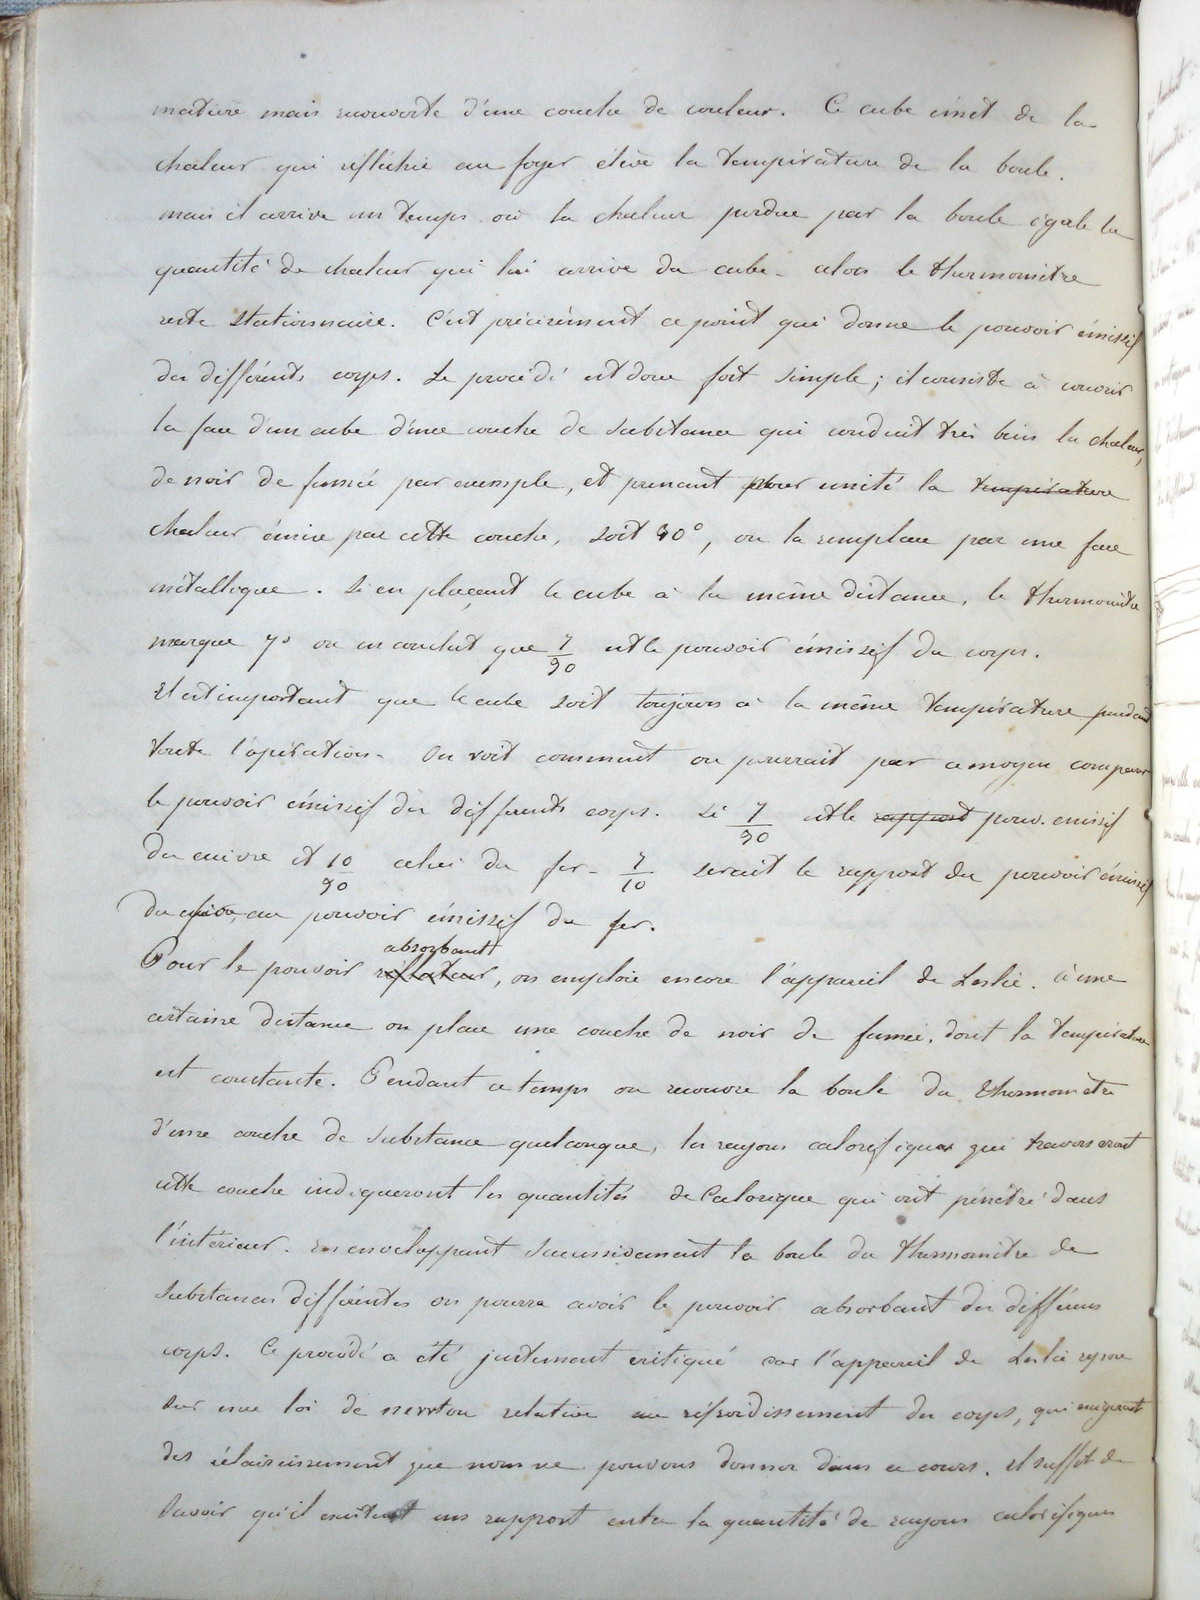 matière mais recouverte d'une couche de couleur. Ce cube émet de la
chaleur qui réfléchie au foyer élève la température de la boule.
mais il arrive un temps où la chaleur perdue par la boule égale la
quantité de chaleur qui lui arrive du cube. alors le thermomètre
reste stationnaire. C'est précisément ce point qui donne le pouvoir émissif
des différents corps. Le procédé est donc fort simple ; il consiste à couvrir
la face d'un cube d'une couche de substance qui conduit très bien la chaleur,
de noir de fumée par exemple, et prenant pour unité la température
chaleur émise par cette couche, soit 90°, on la remplace par une face
métallique. Si en plaçant le cube à la même distance, le thermomètre
marque 7° on en conclut que 7/90 est le pouvoir émissif du corps.
Il est important que le cube soit toujours à la même température pendant
toute l'opération. On voit comment on pourrait par ce moyen comparer
le pouvoir émissif des différents corps. Si 7/90 est le rapport pouv. émissif
du cuivre et 10/90 celui du fer. 7/10 serait le rapport du pouvoir émissif
du cuivre, au pouvoir émissif du fer.
absorbant
Pour le pouvoir réflecteur, on emploie encore l'appareil de Leslie. à une
certaine distance on place une couche de noir de fumée, dont la température
est constante. Pendant ce temps on recouvre la boule du thermomètre
d'une couche de substance quelconque, les rayons calorifiques qui traverseront
cette couche indiqueront les quantités de Calorique qui ont pénétré dans
l'intérieur. En enveloppant successivement la boule du thermomètre de
substances différentes on pourra avoir le pouvoir absorbant des différens
corps. Ce procédé a été justement critiqué car l'appareil de Leslie repose
sur une loi de newton relative au refroidissement des corps, qui exigerait
des éclaircissement que nous ne pouvons donner dans ce cours. Il suffit de
savoir qu'il existe un rapport entre la quantité de rayons calorifiques